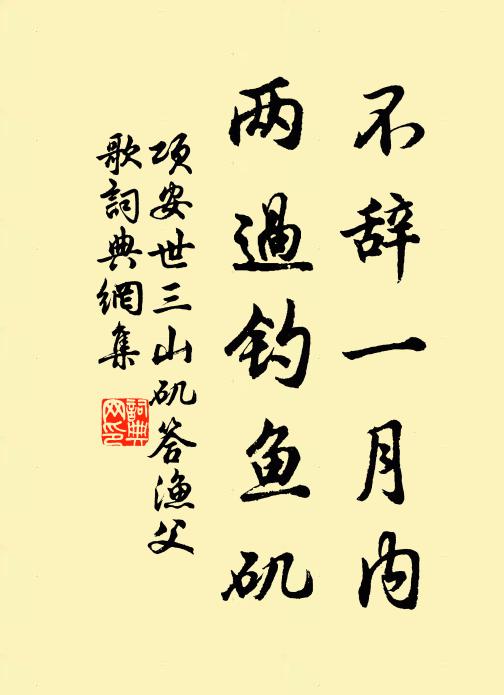 不辞一月内
两過钓鱼矶
项安世三山矶答渔父
歌詞典網集
詞典
网印